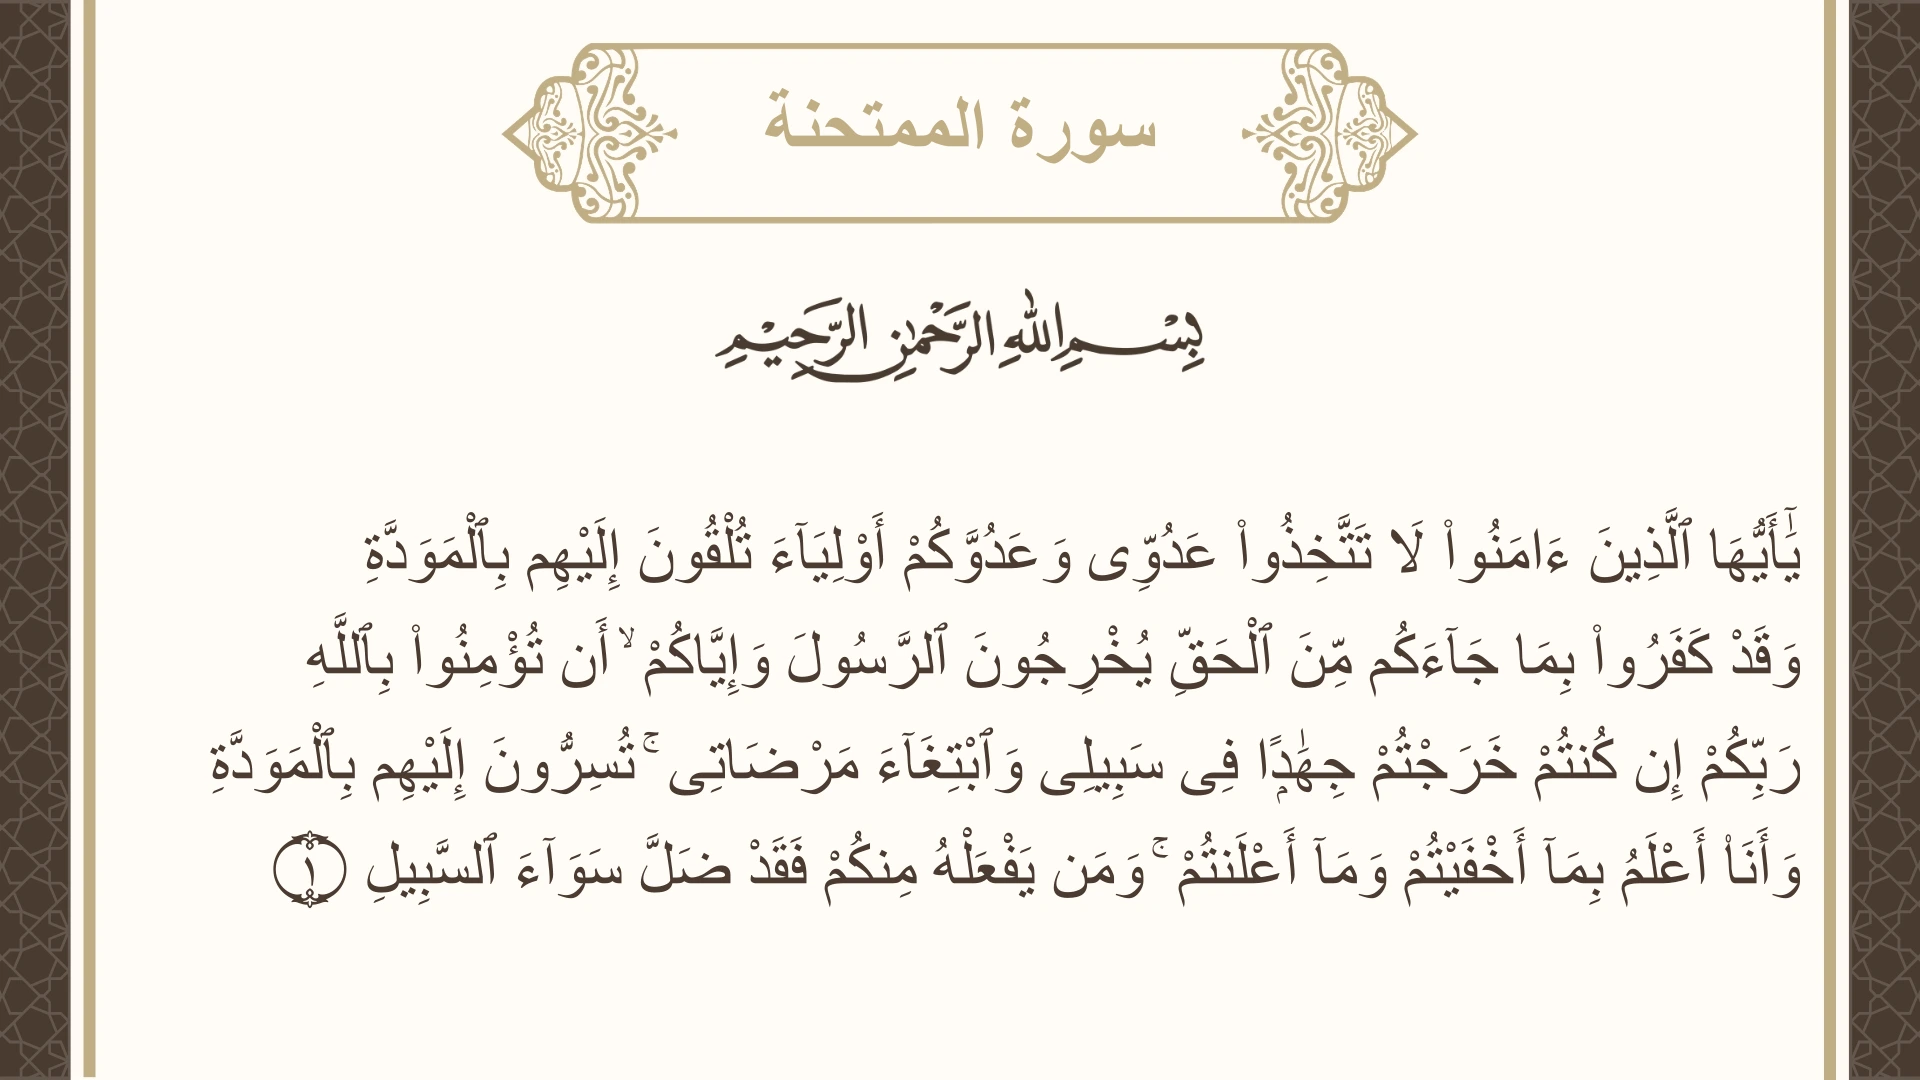 سورة الممتحنة
بِسْمِ اللهِ الرَّحْمٰنِ الرَّحِيْمِ
يَٰٓأَيُّهَا ٱلَّذِينَ ءَامَنُوا۟ لَا تَتَّخِذُوا۟ عَدُوِّى وَعَدُوَّكُمْ أَوْلِيَآءَ تُلْقُونَ إِلَيْهِم بِٱلْمَوَدَّةِ
وَقَدْ كَفَرُوا۟ بِمَا جَآءَكُم مِّنَ ٱلْحَقِّ يُخْرِجُونَ ٱلرَّسُولَ وَإِيَّاكُمْ ۙ أَن تُؤْمِنُوا۟ بِٱللَّهِ
رَبِّكُمْ إِن كُنتُمْ خَرَجْتُمْ جِهَٰدًۭا فِى سَبِيلِى وَٱبْتِغَآءَ مَرْضَاتِى ۚ تُسِرُّونَ إِلَيْهِم بِٱلْمَوَدَّةِ
وَأَنَا۠ أَعْلَمُ بِمَآ أَخْفَيْتُمْ وَمَآ أَعْلَنتُمْ ۚ وَمَن يَفْعَلْهُ مِنكُمْ فَقَدْ ضَلَّ سَوَآءَ ٱلسَّبِيلِ ١